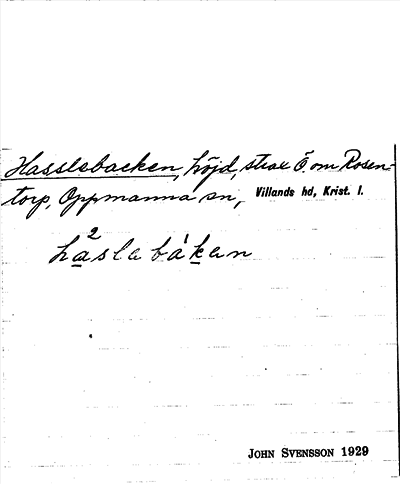 Hasslebacken, höjd, strax Ö. om Rosen-
torp, Oppmanna sn, Villands hd, Krist. l.
ha²slabákan
JOHN SVENSSON 1929